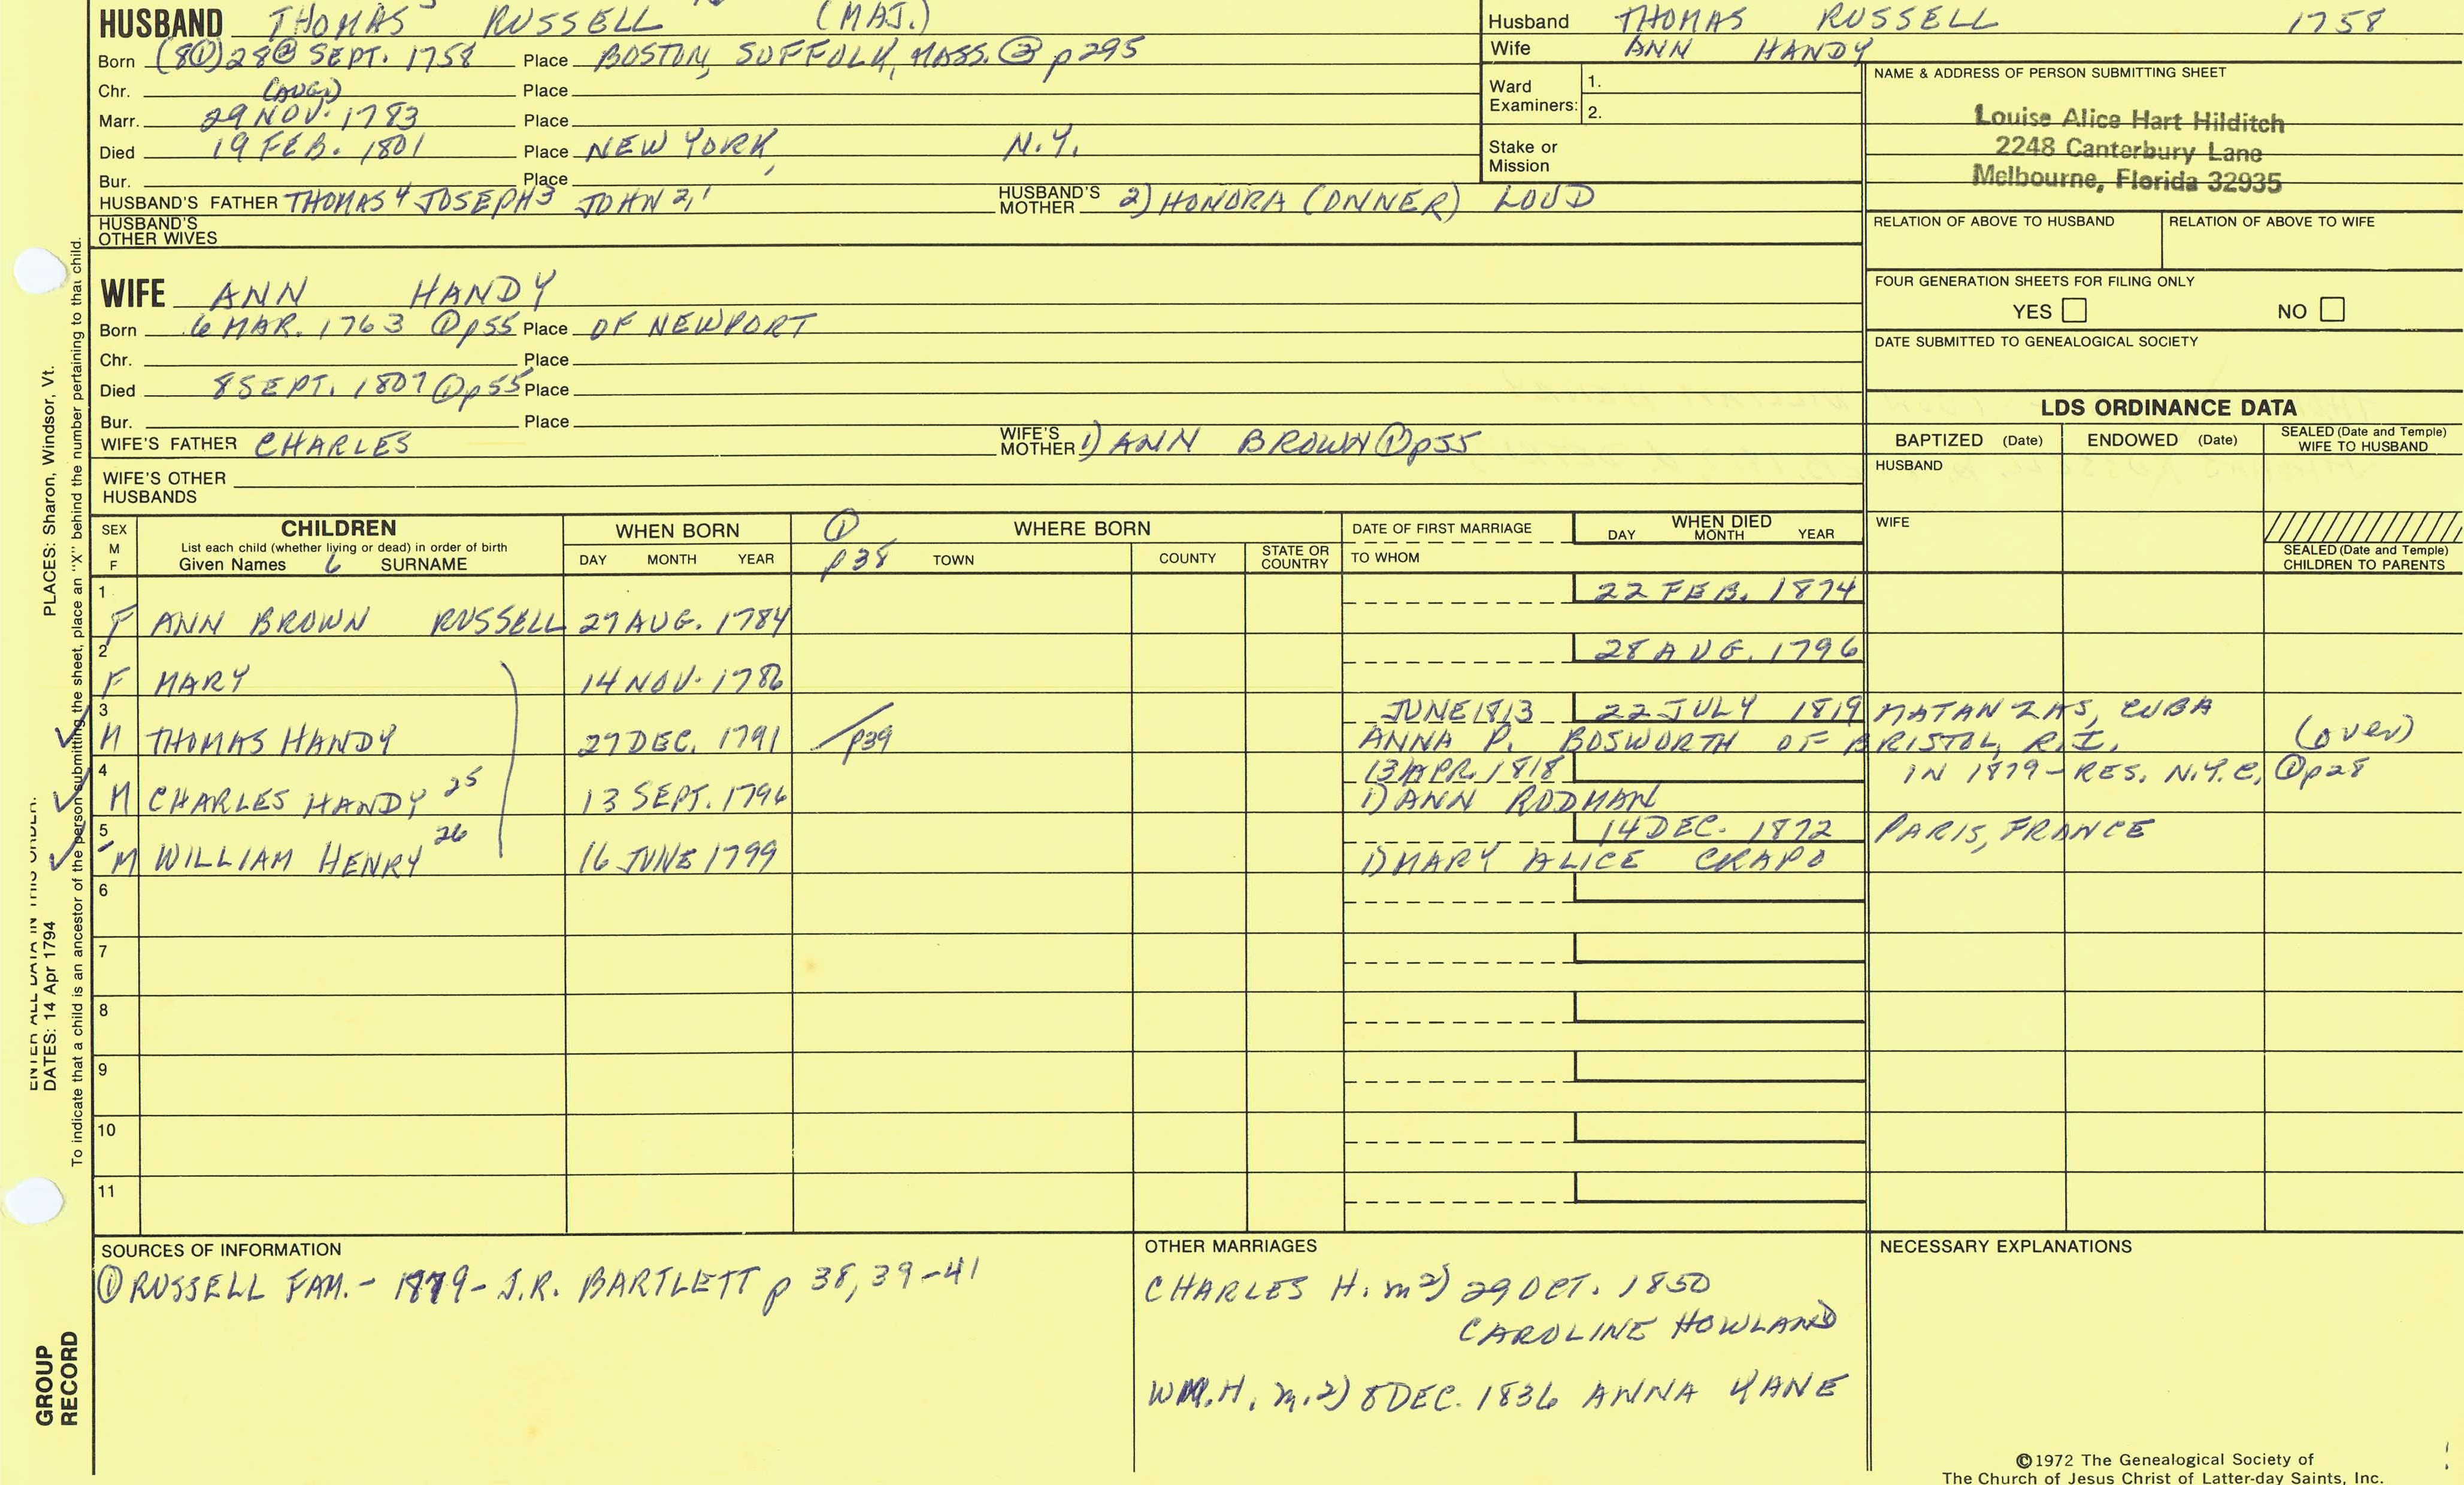 HUSBAND THOMAS 5 RUSSELL (MAJ.)
Born (8①) 28② SEPT. 1758 Place BOSTON, SUFFOLK, MASS. ② p295
Chr. (AUG①) Place
Marr. 29 NOV. 1783 Place
Died 19 FEB. 1801 Place NEW YORK, N.Y.
Bur. Place
HUSBAND'S FATHER THOMAS 4 JOSEPH 3 JOHN 2,1 HUSBAND'S MOTHER 2) HONORA (ONNER) LOUD
HUSBAND'S OTHER WIVES
Husband THOMAS RUSSELL 1758
Wife ANN HANDY
Ward Examiners: 1.
2.
Stake or Mission
NAME & ADDRESS OF PERSON SUBMITTING SHEET
Louise Alice Hart Hilditch
2248 Canterbury Lane
Melbourne, Florida 32935
RELATION OF ABOVE TO HUSBAND RELATION OF ABOVE TO WIFE
FOUR GENERATION SHEETS FOR FILING ONLY
YES NO
DATE SUBMITTED TO GENEALOGICAL SOCIETY
WIFE ANN HANDY
Born 6 MAR. 1763 ①p55 Place OF NEWPORT
Chr. Place
Died 8 SEPT. 1807 ①p55 Place
Bur. Place
WIFE'S FATHER CHARLES WIFE'S MOTHER 1) ANN BROWN ①p55
WIFE'S OTHER HUSBANDS
LDS ORDINANCE DATA
BAPTIZED (Date) ENDOWED (Date) SEALED (Date and Temple) WIFE TO HUSBAND
HUSBAND
WIFE
SEALED (Date and Temple) CHILDREN TO PARENTS
SEX M F
CHILDREN
List each child (whether living or dead) in order of birth
Given Names 6 SURNAME
WHEN BORN
DAY MONTH YEAR
① p38 WHERE BORN
TOWN COUNTY STATE OR COUNTRY
DATE OF FIRST MARRIAGE
TO WHOM
WHEN DIED
DAY MONTH YEAR
1 22 FEB. 1874
F ANN BROWN RUSSELL 27 AUG. 1784
2 28 AUG. 1796
F MARY 14 NOV. 1786
3 JUNE 1813 22 JULY 1819 MATANZAS, CUBA
M THOMAS HANDY 27 DEC. 1791 p39 ANNA P. BOSWORTH OF BRISTOL, R.I. (over)
4 13 APR. 1818 IN 1879 - RES. N.Y.C. ①p28
M CHARLES HANDY 25 13 SEPT. 1796 1) ANN RODMAN
5 14 DEC. 1872 PARIS, FRANCE
M WILLIAM HENRY 26 16 JUNE 1799 1) MARY ALICE CRAPO
6
7
8
9
10
11
SOURCES OF INFORMATION
① RUSSELL FAM. - 1879 - J.R. BARTLETT p 38, 39-41
OTHER MARRIAGES
CHARLES H. m 2) 29 OCT. 1850
CAROLINE HOWLAND
WM. H. m. 2) 8 DEC. 1836 ANNA KANE
NECESSARY EXPLANATIONS
©1972 The Genealogical Society of
The Church of Jesus Christ of Latter-day Saints, Inc.
PLACES: Sharon, Windsor, Vt.
To indicate that a child is an ancestor of the person submitting the sheet, place an "X" behind the number pertaining to that child.
ENTER ALL DATA IN THIS ORDER:
DATES: 14 Apr 1794
GROUP
RECORD